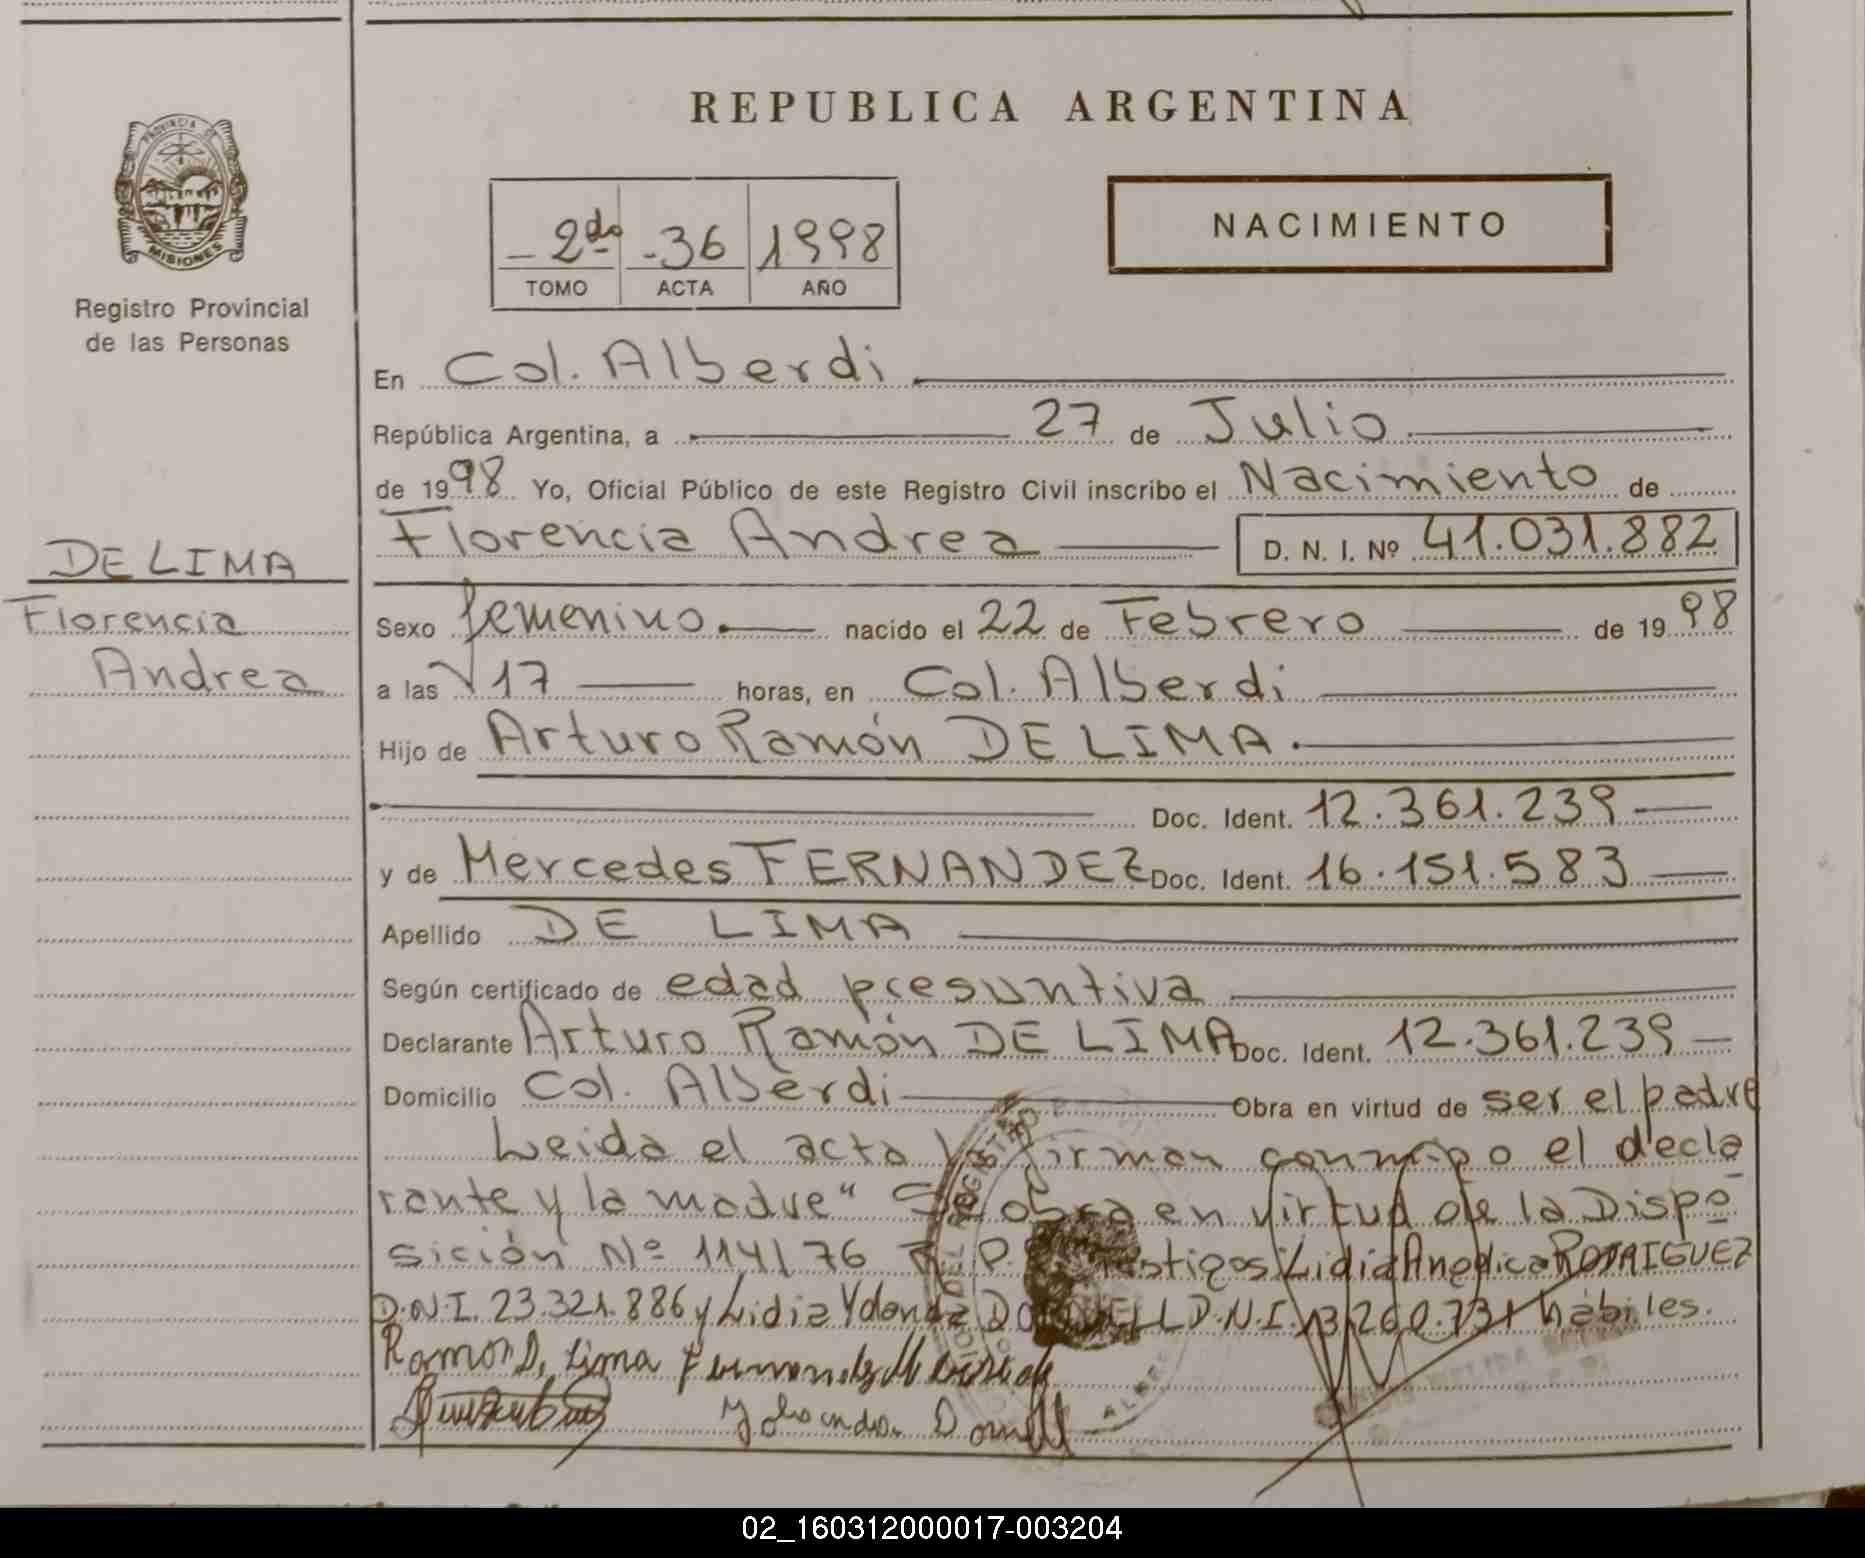 REPUBLICA ARGENTINA
PROVINCIA DE
MISIONES
Registro Provincial
de las Personas
2do 36 1998
TOMO ACTA AÑO
NACIMIENTO
En Col. Alberdi
República Argentina, a 27 de Julio
de 1998 Yo, Oficial Público de este Registro Civil inscribo el Nacimiento de
Florencia Andrea D. N. I. Nº 41.031.882
DE LIMA
Florencia
Andrea
Sexo femenino. nacido el 22 de Febrero de 1998
a las 17 horas, en Col. Alberdi
Hijo de Arturo Ramón DE LIMA.
Doc. Ident. 12.361.239
y de Mercedes FERNANDEZ Doc. Ident. 16.151.583
Apellido DE LIMA
Según certificado de edad presuntiva
Declarante Arturo Ramón DE LIMA Doc. Ident. 12.361.239
Domicilio Col. Alberdi Obra en virtud de ser el padre
Leida el acta firman conmigo el decla
rante y la madre" Se obra en virtud de la Dispo
sición Nº 114/76 R. P. Testigos Lidia RODRIGUEZ
D.N.I. 23.321.886 y Lidia Ydanda D.N.I. 13.260.731 hábiles.
Ramon D. Lima Fernandez
Yolanda
02_160312000017-003204